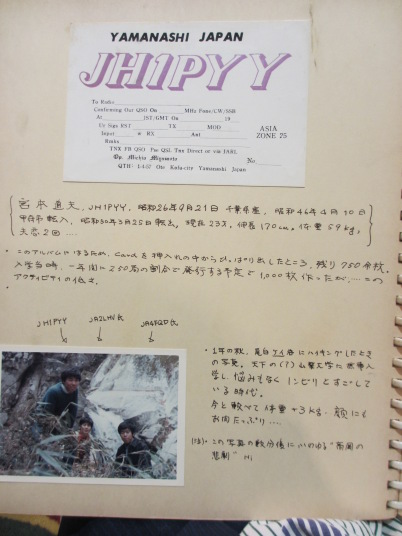 YAMANASHI JAPAN
JH1PYY
To Radio
Confirming Our QSO On MHz Fone/CW/SSB
At JST/GMT On 19
Ur Sign RST TX MOD
Input w RX Ant
Rmks
ASIA
ZONE 25
TNX FB QSO Pse QSL Tnx Direct or via JARL
Op. Michio Miyamoto
No.
QTH: Kofu-city Yamanashi Japan
宮本道夫, JH1PYY, 昭和26年9月21日 千葉県産, 昭和46年4月10日
甲府市転入, 昭和50年3月25日転出, 現在23才, 伸長170cm, 体重59kg,
失恋2回....
・このアルバムにはるため, Cardを押入れの中からひっぱり出したところ, 残り750余枚。
入学当時, 一年間に250局の割合で発行する予定で1,000枚作ったが.....この
アクティビティの低さ。
JH1PYY JA2LHV氏
・1年の秋, 尾白 ハイキングしたとき
の写真。天下の(?)山梨大学に 入
学し, 悩みもなく ノンビリとすごして
いる時代。
今と較べて体重+3kg. 顔にも
お肉たっぷり....
・この写真の数分後に の
悲劇"